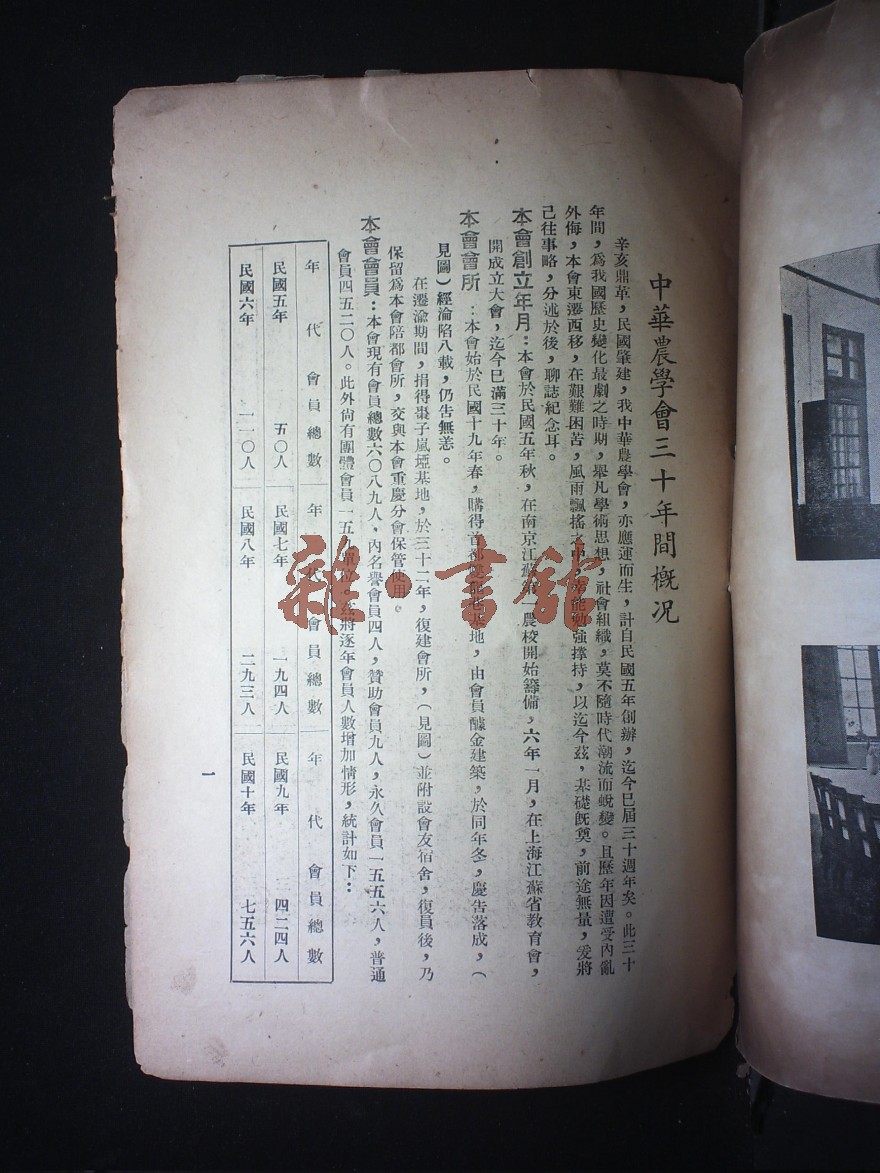 中華農學會三十年間概況
辛亥鼎革，民國肇建，我中華農學會，亦應運而生，計自民國五年創辦，迄今已屆三十週年矣。此三十
年間，爲我國歷史變化最劇之時期，舉凡學術思想，社會組織，莫不隨時代潮流而蛻變。且歷年因遭受內亂
外侮，本會東遷西移，在艱難困苦，風雨飄搖之中，幸能勉強撑持，以迄今茲，基礎旣奠，前途無量，爰將
己往事略，分述於後，聊誌紀念耳。
本會創立年月：本會於民國五年秋，在南京江蘇第一農校開始籌備，六年一月，在上海江蘇省教育會，
開成立大會，迄今已滿三十年。
本會會所：本會始於民國十九年春，購得首都雙龍巷基地，由會員醵金建築，於同年冬，慶告落成，（
見圖）經淪陷八載，仍告無恙。
在遷渝期間，捐得棗子嵐埡基地，於三十二年，復建會所，（見圖）並附設會友宿舍，復員後，乃
保留爲本會陪都會所，交與本會重慶分會保管使用。
本會會員：本會現有會員總數六〇八九人，內名譽會員四人，贊助會員九人，永久會員一五五六人，普通
會員四五二〇人。此外尙有團體會員一五 單位。茲將逐年會員人數增加情形，統計如下：
年代 會員總數 年代 會員總數 年代 會員總數
民國五年 五〇人 民國七年 一九四人 民國九年 四二四人
民國六年 一一〇人 民國八年 二九三人 民國十年 七五六人
一
雜·書舘